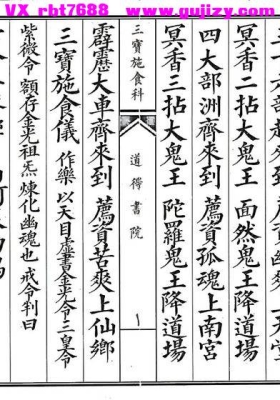 VX rbt7688 www.gujizy.com
冥香二拈大鬼王 面然鬼王降道場
四大部洲齊來到 薦資孤魂上南宮
冥香三拈大鬼王 陀羅鬼王降道場
三寶施食科
道得書院
霹靂大車齊來到 薦資苦爽上仙鄉
三寶施食儀 作樂 以天目虛書金光令三皇令
紫微令 額存金光祖炁 煉化幽魂也 戒令判曰